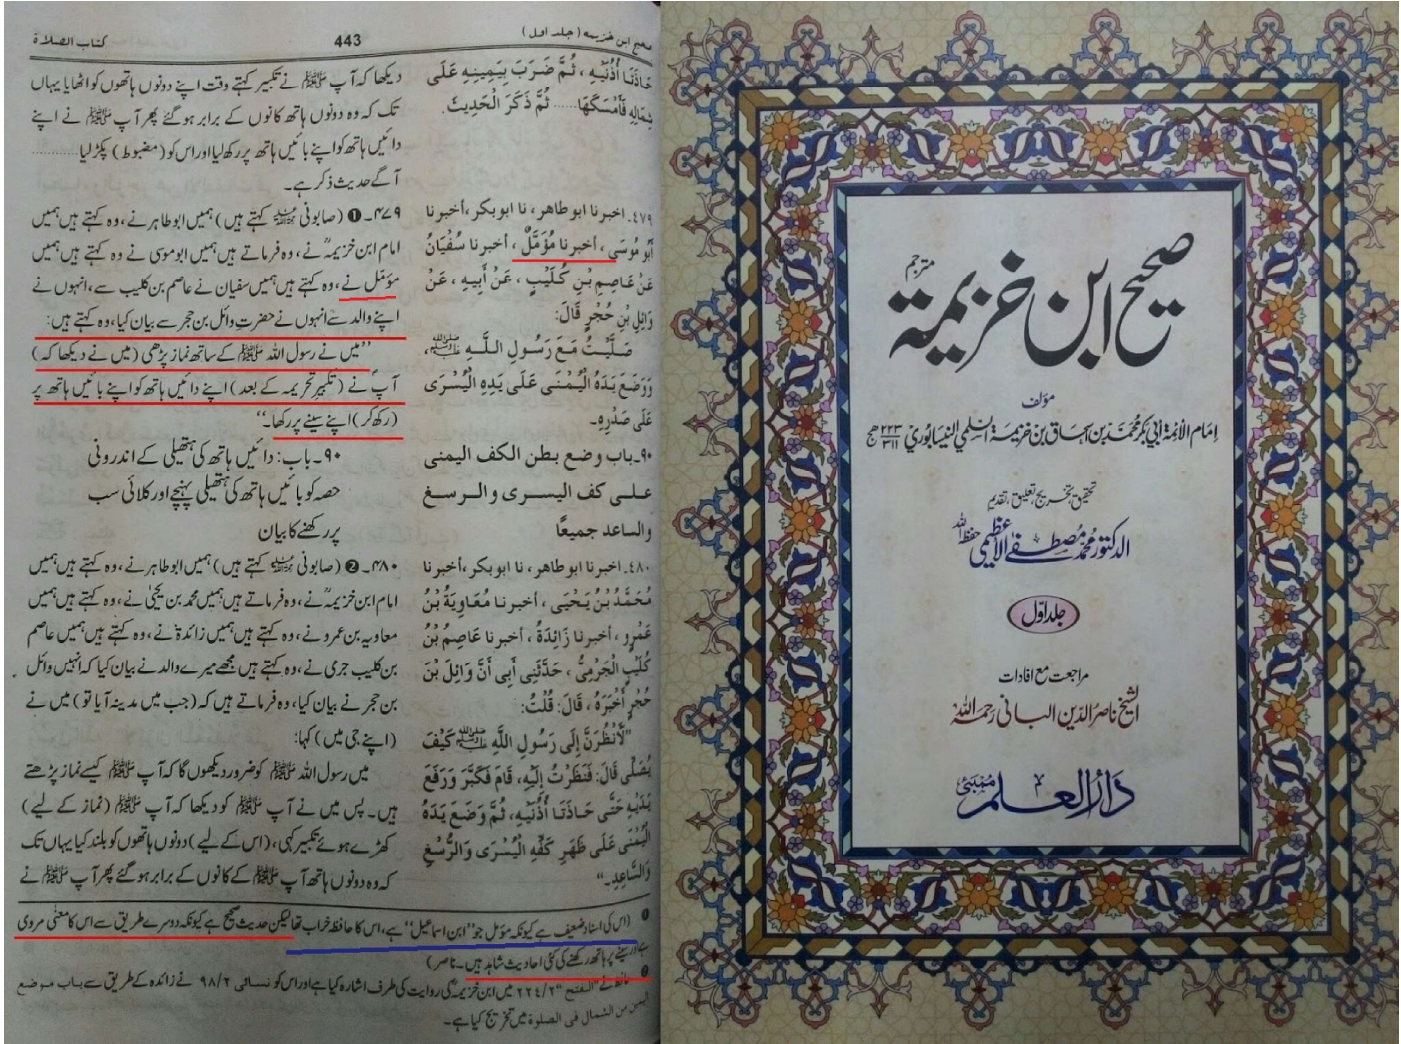 صحیح ابن خزیمہ (جلد اول)
443
کتاب الصلاۃ
حَاذَتَا أُذُنَيْهِ ، ثُمَّ ضَرَبَ بِيَمِينِهِ عَلَى
شِمَالِهِ فَأَمْسَكَهَا...... ثُمَّ ذَكَرَ الْحَدِيثَ.
٤٧٩۔ اخبرنا ابو طاهر، نا ابوبكر، أخبرنا
أَبُو مُوسَى، أخبرنا مُؤَمَّلٌ، أخبرنا سُفْيَانُ
عَنْ عَاصِمِ بْنِ كُلَيْبٍ ، عَنْ أَبِيهِ ، عَنْ
وَائِلِ بْنِ حُجْرٍ قَالَ:
صَلَّيْتُ مَعَ رَسُولِ اللَّهِ ﷺ،
وَوَضَعَ يَدَهُ الْيُمْنَى عَلَى يَدِهِ الْيُسْرَى
عَلَى صَدْرِهِ۔
٩٠۔باب وضع بطن الكف اليمنى
على كف اليسرى والرسغ
والساعد جميعًا
٤٨٠۔ اخبرنا ابو طاهر، نا ابوبكر، أخبرنا
مُحَمَّدُ بْنُ يَحْيَى ، أخبرنا مُعَاوِيَةُ بْنُ
عَمْرٍو ، أخبرنا زَائِدَةُ ، أخبرنا عَاصِمُ بْنُ
كُلَيْبٍ الْجَرْمِيُّ ، حَدَّثَنِي أَبِي أَنَّ وَائِلَ بْنَ
حُجْرٍ أَخْبَرَهُ ، قَالَ: قُلْتُ:
"لَأَنْظُرَنَّ إِلَى رَسُولِ اللَّهِ ﷺ كَيْفَ
يُصَلِّي قَالَ: فَنَظَرْتُ إِلَيْهِ، قَامَ فَكَبَّرَ وَرَفَعَ
يَدَيْهِ حَتَّى حَاذَتَا أُذُنَيْهِ، ثُمَّ وَضَعَ يَدَهُ
الْيُمْنَى عَلَى ظَهْرِ كَفِّهِ الْيُسْرَى وَالرُّسْغِ
وَالسَّاعِدِ۔"
دیکھا کہ آپ ﷺ نے تکبیر کہتے وقت اپنے دونوں ہاتھوں کو اٹھایا یہاں
تک کہ وہ دونوں ہاتھ کانوں کے برابر ہوگئے پھر آپ ﷺ نے اپنے
دائیں ہاتھ کو اپنے بائیں ہاتھ پر رکھ لیا اور اس کو (مضبوط) پکڑ لیا ........
آگے حدیث ذکر ہے۔
۴۷۹۔ ❶ (صابونی کہتے ہیں) ہمیں ابو طاہر نے، وہ کہتے ہیں ہمیں
امام ابن خزیمہؒ نے، وہ فرماتے ہیں ہمیں ابو موسی نے وہ کہتے ہیں ہمیں
مؤمل نے، وہ کہتے ہیں ہمیں سفیان نے عاصم بن کلیب سے، انہوں نے
اپنے والد سے انہوں نے حضرت وائل بن حجر سے بیان کیا، وہ کہتے ہیں:
”میں نے رسول اللہ ﷺ کے ساتھ نماز پڑھی (میں نے دیکھا کہ)
آپ نے (تکبیر تحریمہ کے بعد) اپنے دائیں ہاتھ کو اپنے بائیں ہاتھ پر
(رکھ کر) اپنے سینے پر رکھا۔“
۹۰۔ باب: دائیں ہاتھ کی ہتھیلی کے اندرونی
حصہ کو بائیں ہاتھ کی ہتھیلی پہنچے اور کلائی سب
پر رکھنے کا بیان
۴۸۰۔ ❷ (صابونی کہتے ہیں) ہمیں ابو طاہر نے، وہ کہتے ہیں ہمیں
امام ابن خزیمہؒ نے، وہ فرماتے ہیں ہمیں محمد بن یحییٰ نے، وہ کہتے ہیں ہمیں
معاویہ بن عمرو نے، وہ کہتے ہیں ہمیں زائدۃ نے، وہ کہتے ہیں ہمیں عاصم
بن کلیب جرمی نے، وہ کہتے ہیں مجھے میرے والد نے بیان کیا کہ انہیں وائل
بن حجر نے بیان کیا، وہ فرماتے ہیں کہ (جب میں مدینہ آیا تو) میں نے
(اپنے جی میں) کہا:
میں رسول اللہ ﷺ کو ضرور دیکھوں گا کہ آپ ﷺ کیسے نماز پڑھتے
ہیں۔ پس میں نے آپ ﷺ کو دیکھا کہ آپ ﷺ (نماز کے لیے)
کھڑے ہوئے تکبیر کہی، (اس کے لیے) دونوں ہاتھوں کو بلند کیا یہاں تک
کہ وہ دونوں ہاتھ آپ ﷺ کے کانوں کے برابر ہوگئے پھر آپ ﷺ نے
❶ (اس کی اسناد ضعیف ہے کیونکہ مؤمل جو ”ابن اسماعیل“ ہے، اس کا حافظہ خراب تھا لیکن حدیث صحیح ہے کیونکہ دوسرے طریق سے اس کا معنی مروی
ہے اور سینے پر ہاتھ رکھنے کی کئی احادیث شاہد ہیں۔ ناصر)
❷ حافظ نے ”الفتح“ ۲/۲۲۴ میں ابن خزیمہؒ کی روایت کی طرف اشارہ کیا ہے اور اس کو نسائی ۲/۹۸ نے زائدہ کے طریق سے باب موضع
اليمين من الشمال فی الصلوۃ میں تخریج کیا ہے۔
صحیح ابن خزیمۃ
مترجم
مؤلف
امام الائمۃ ابی بکر محمد بن اسحاق بن خزیمۃ السلمی النیسابوری ۲۲۳ ۳۱۱ھج
تحقیق، تخریج، تعلیق، تقدیم
الدکتور محمد مصطفےٰ الاعظمی حفظہ اللہ
جلد اوّل
مراجعت مع افادات
الشیخ ناصر الدین البانی رحمہ اللہ
دار العلم ممبئی